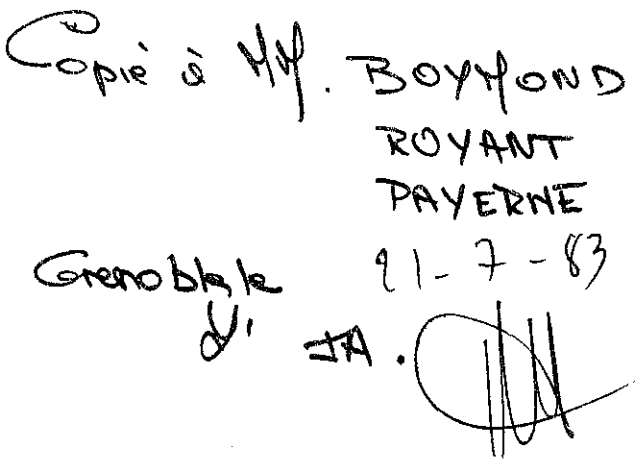 Copié à MM. BOYMOND
ROYANT
PAYERNE
Grenoble le 21-7-83
JA.